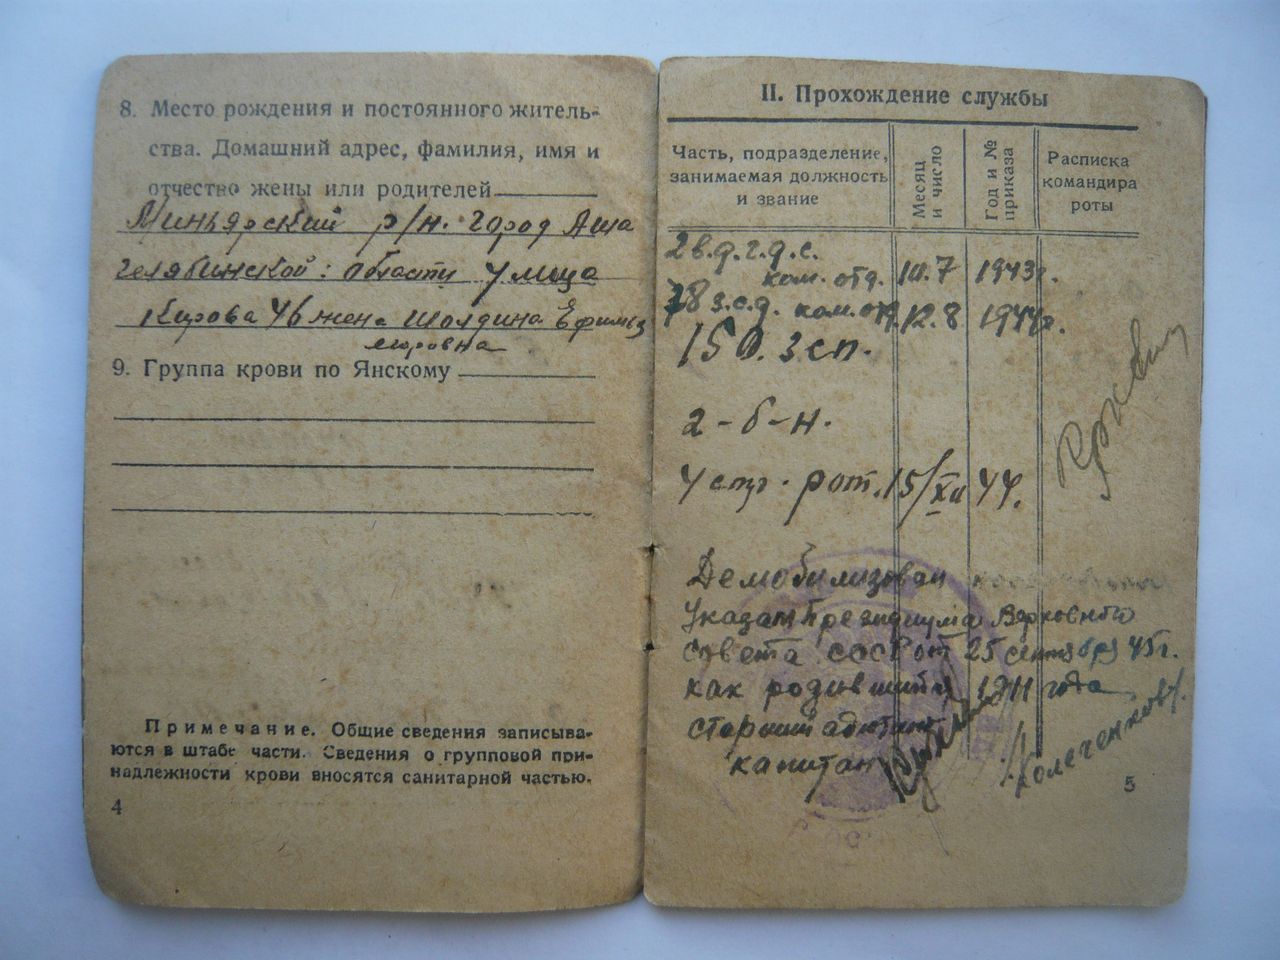 8. Место рождения и постоянного житель-
ства. Домашний адрес, фамилия, имя и
отчество жены или родителей
Миньярский р/н. город Аша
Челябинской: области улица
Кирова 46 жена Шолдина Ефимья
Егоровна
9. Группа крови по Янскому
Примечание. Общие сведения записыва-
ются в штабе части. Сведения о групповой при-
надлежности крови вносятся санитарной частью.
4
II. Прохождение службы
Часть, подразделение,
занимаемая должность
и звание
Месяц
и число
Год и №
приказа
Расписка
командира
роты
2 в.д.г.д.с.
ком. отд. 10.7 1943г.
78 з.с.д. ком. отд. 12.8 1944г.
150. з сп.
2-б-н.
4 стр. рот. 15/XII 44.
Демобилизован
Указам Президиума Верховного
совета СССР от 25 сентября 45 г.
как родившийся 1911 года
старший адютант
капитан
Колеченков
5